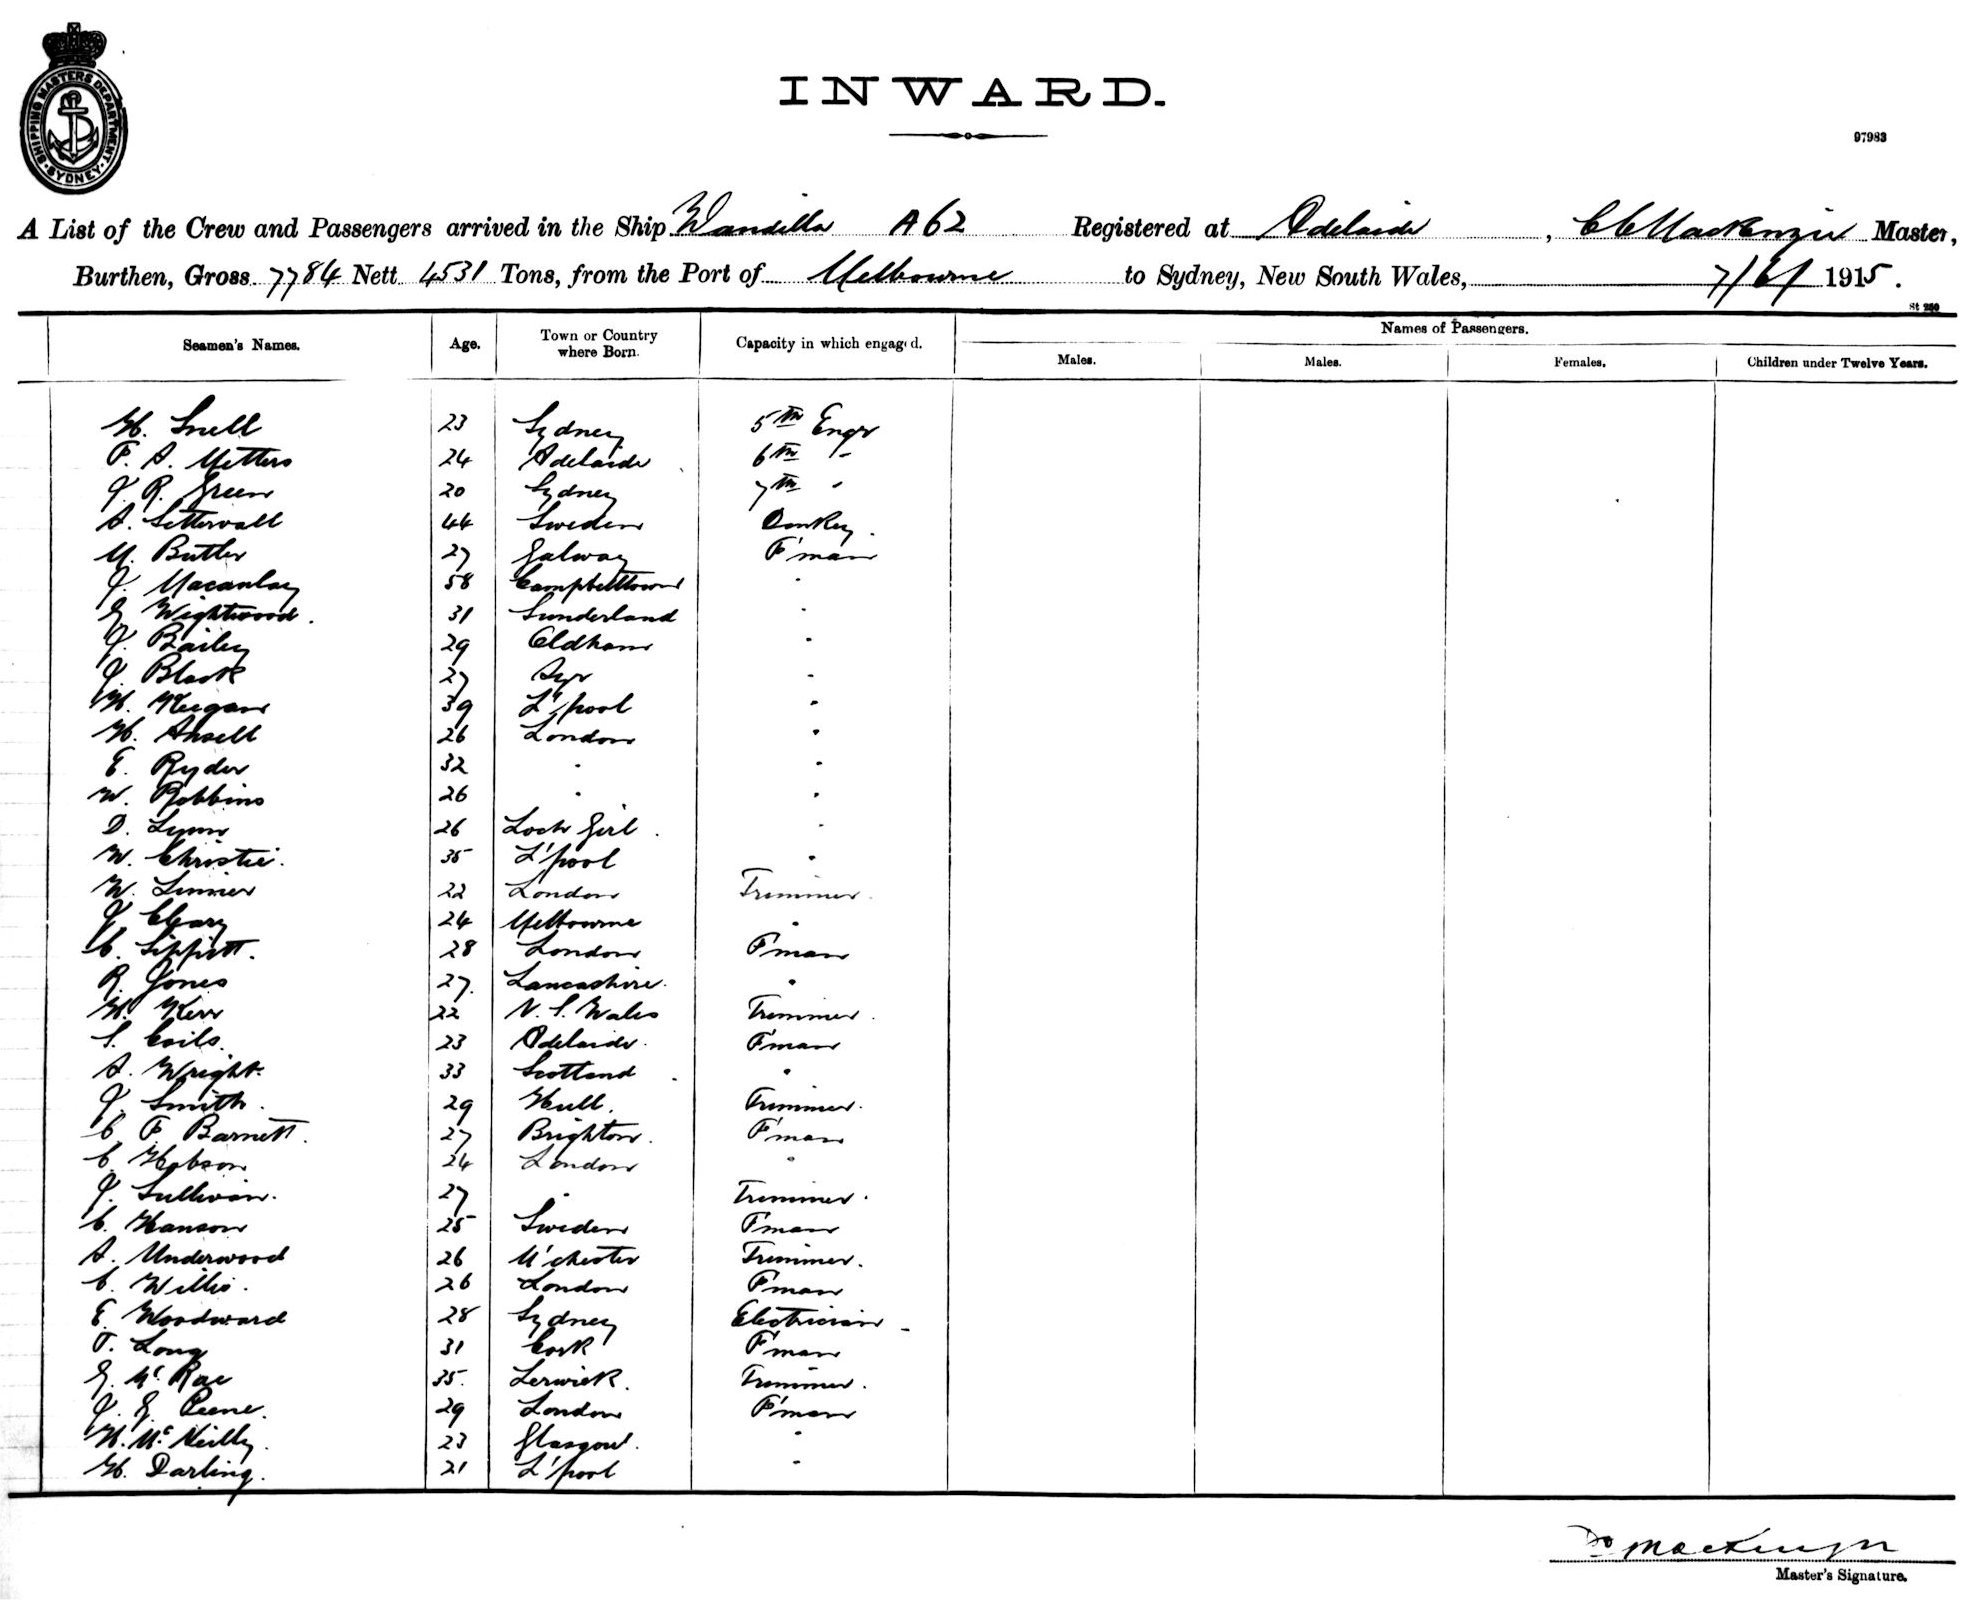 SHIPPING MASTERS DEPARTMENT
SYDNEY
INWARD.
97983
A List of the Crew and Passengers arrived in the Ship Wandilla A62 Registered at Adelaide, C C Mackenzie Master,
Burthen, Gross 7784 Nett 4531 Tons, from the Port of Melbourne to Sydney, New South Wales, 7/6/ 1915.
St 280
Seamen's Names. Age. Town or Country where Born. Capacity in which engaged. Names of Passengers.
Males. Males. Females. Children under Twelve Years.
H. Snell 23 Sydney 5th Engr
F. A. Metters 24 Adelaide 6th "
J. R. Green 20 Sydney 7th "
A. Settervall 44 Sweden Donkey
M. Butler 27 Galway F'man
J. Macaulay 58 Campbelltown "
G Wightwood. 31 Sunderland "
J. Bailey 29 Oldham "
J. Black 27 Ayr "
H. Keegan 39 L'pool "
H. Ansell 26 London "
E. Ryder 32 " "
W. Robbins 26 " "
D. Lynn 26 Loch Girl. "
W. Christie. 35 L'pool "
W. Linnier 22 London Trimmer.
J. Cleary 24 Melbourne "
C. Sippitt. 28 London F'man
R. Jones 27. Lancashire. "
H. Kerr 22 N. S. Wales Trimmer.
S. Coils. 23 Adelaide. F'man
A. Wright. 33 Scotland "
J. Smith. 29 Hull. Trimmer.
C. F. Barnett. 27 Brighton. F'man
C. Hobson 24 London "
J. Sullivan. 27 " Trimmer.
C. Hanson 25 Sweden F'man
A. Underwood 26 M'chester Trimmer.
C. Willis. 26 London F'man
E. Woodward 28 Sydney Electrician
T. Long 31 Cork F'man
G. Mc Rae 35. Lerwick. Trimmer.
J. G. Peene. 29 London F'man
H. Mc Neilly. 23 Glasgow. "
H. Darling. 21 L'pool "
Mackenzie
Master's Signature.